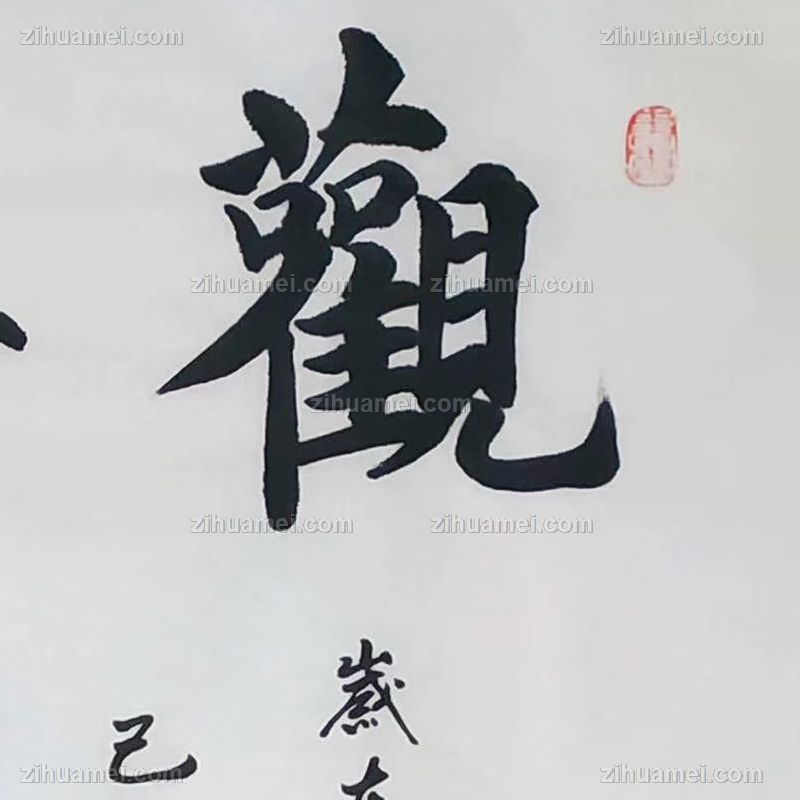 觀
歲在
己
zihuamei.com zihuamei.com
zihuamei.com zihuamei.com
zihuamei.com
zihuamei.com zihuamei.com
zihuamei.com zihuamei.com